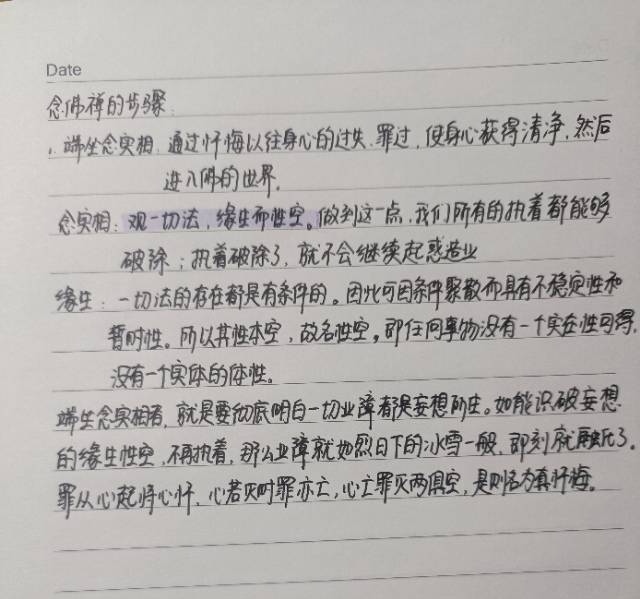 Date
念佛禅的步骤:
、端坐念实相. 通过忏悔以往身心的过失.罪过, 使身心获得清净.然后
进入佛的世界.
念实相: 观一切法, 缘生而性空。做到这一点,我们所有的执着都能够
破除;执着破除了, 就不会继续起惑造业
缘生: 一切法的存在都是有条件的。因此可因条件聚散而具有不稳定性和
暂时性。所以其性本空, 故名性空。即任何事物没有一个实在性可得.
没有一个实体的体性。
端坐念实相者, 就是要彻底明白一切业障都是妄想所生。如能识破妄想
的缘生性空, 不再执着, 那么业障就如烈日下的冰雪一般, 即刻就融化了.
罪从心起将心忏. 心若灭时罪亦亡, 心亡罪灭两俱空, 是则名为真忏悔。